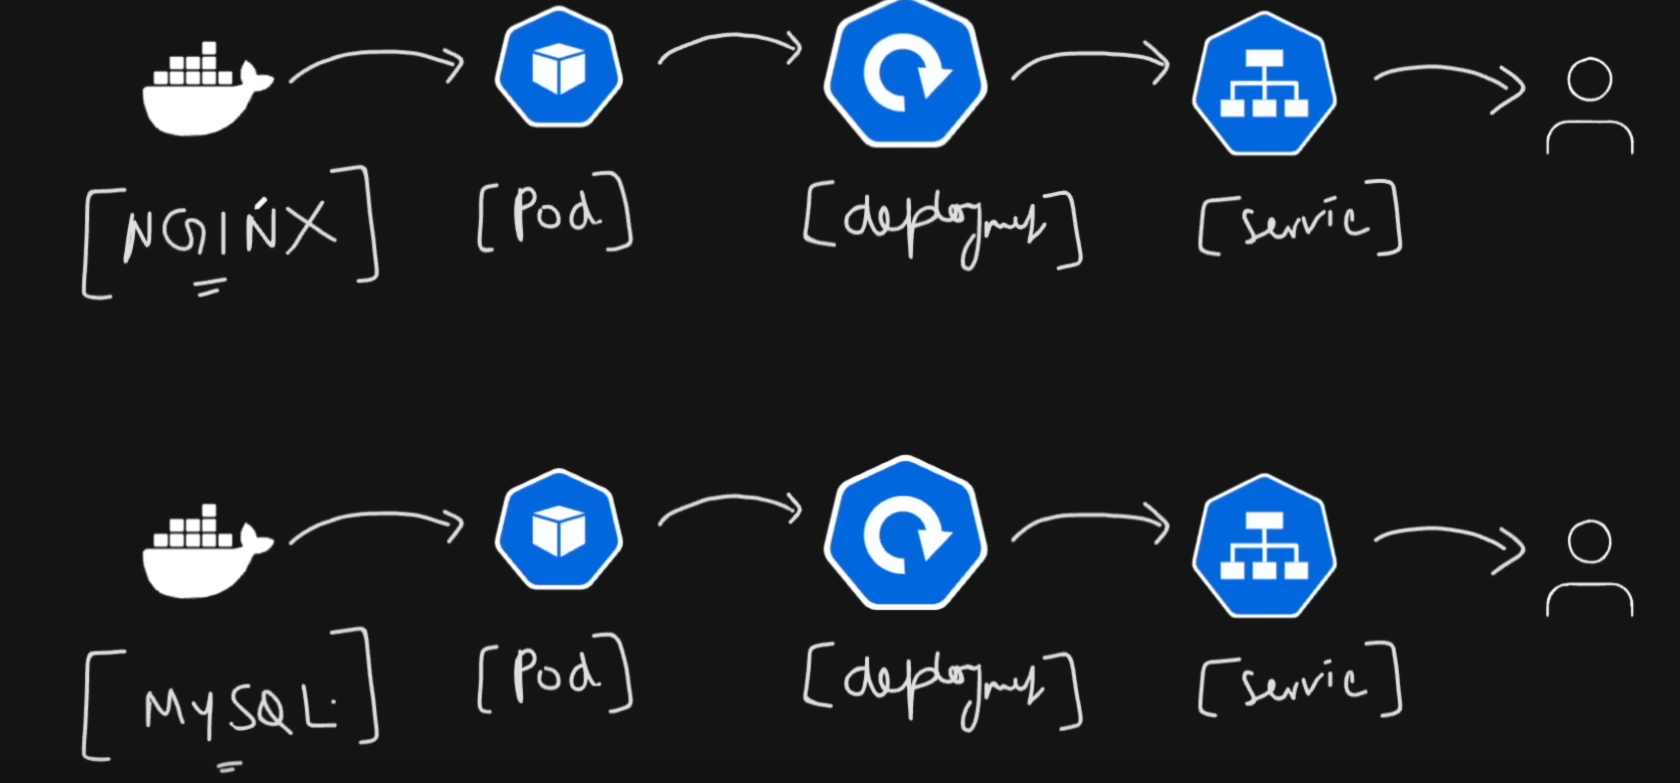 [NGINX] [Pod] [deploymet] [servic]
[MySQL] [Pod] [deploymet] [servic]